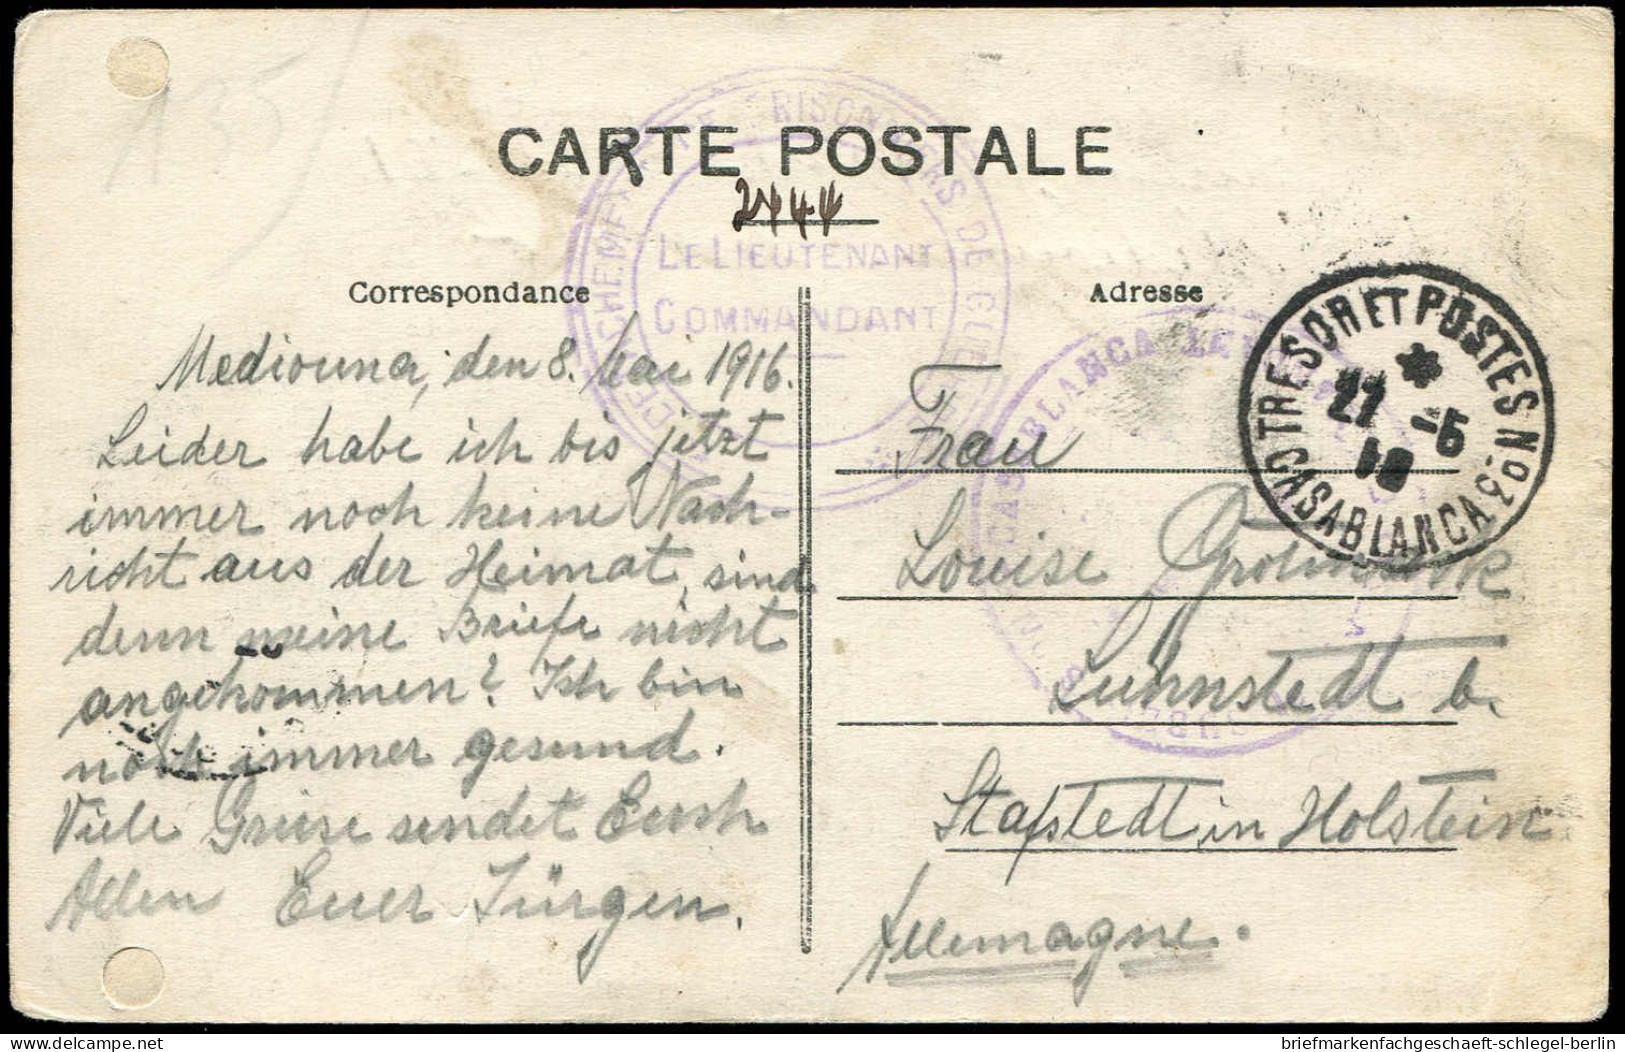 A 35
CARTE POSTALE
2444
LE LIEUTENANT
COMMANDANT
Correspondance
Mediouna, den 8. Mai 1916.
Leider habe ich bis jetzt
immer noch keine Nach-
richt aus der Heimat, sind
denn meine Briefe nicht
angekommen? Ich bin
noch immer gesund.
Viele Grüsse sendet Euch
Allen Euer Jürgen.
Adresse
TRESOR ET POSTES No 3
* CASABLANCA *
27 -5
16
CASABLANCA
Frau
Louise
Luhnstedt b.
Stafstedt in Holstein
Allemagne.
briefmarkenfachgeschaeft-schlegel-berlin